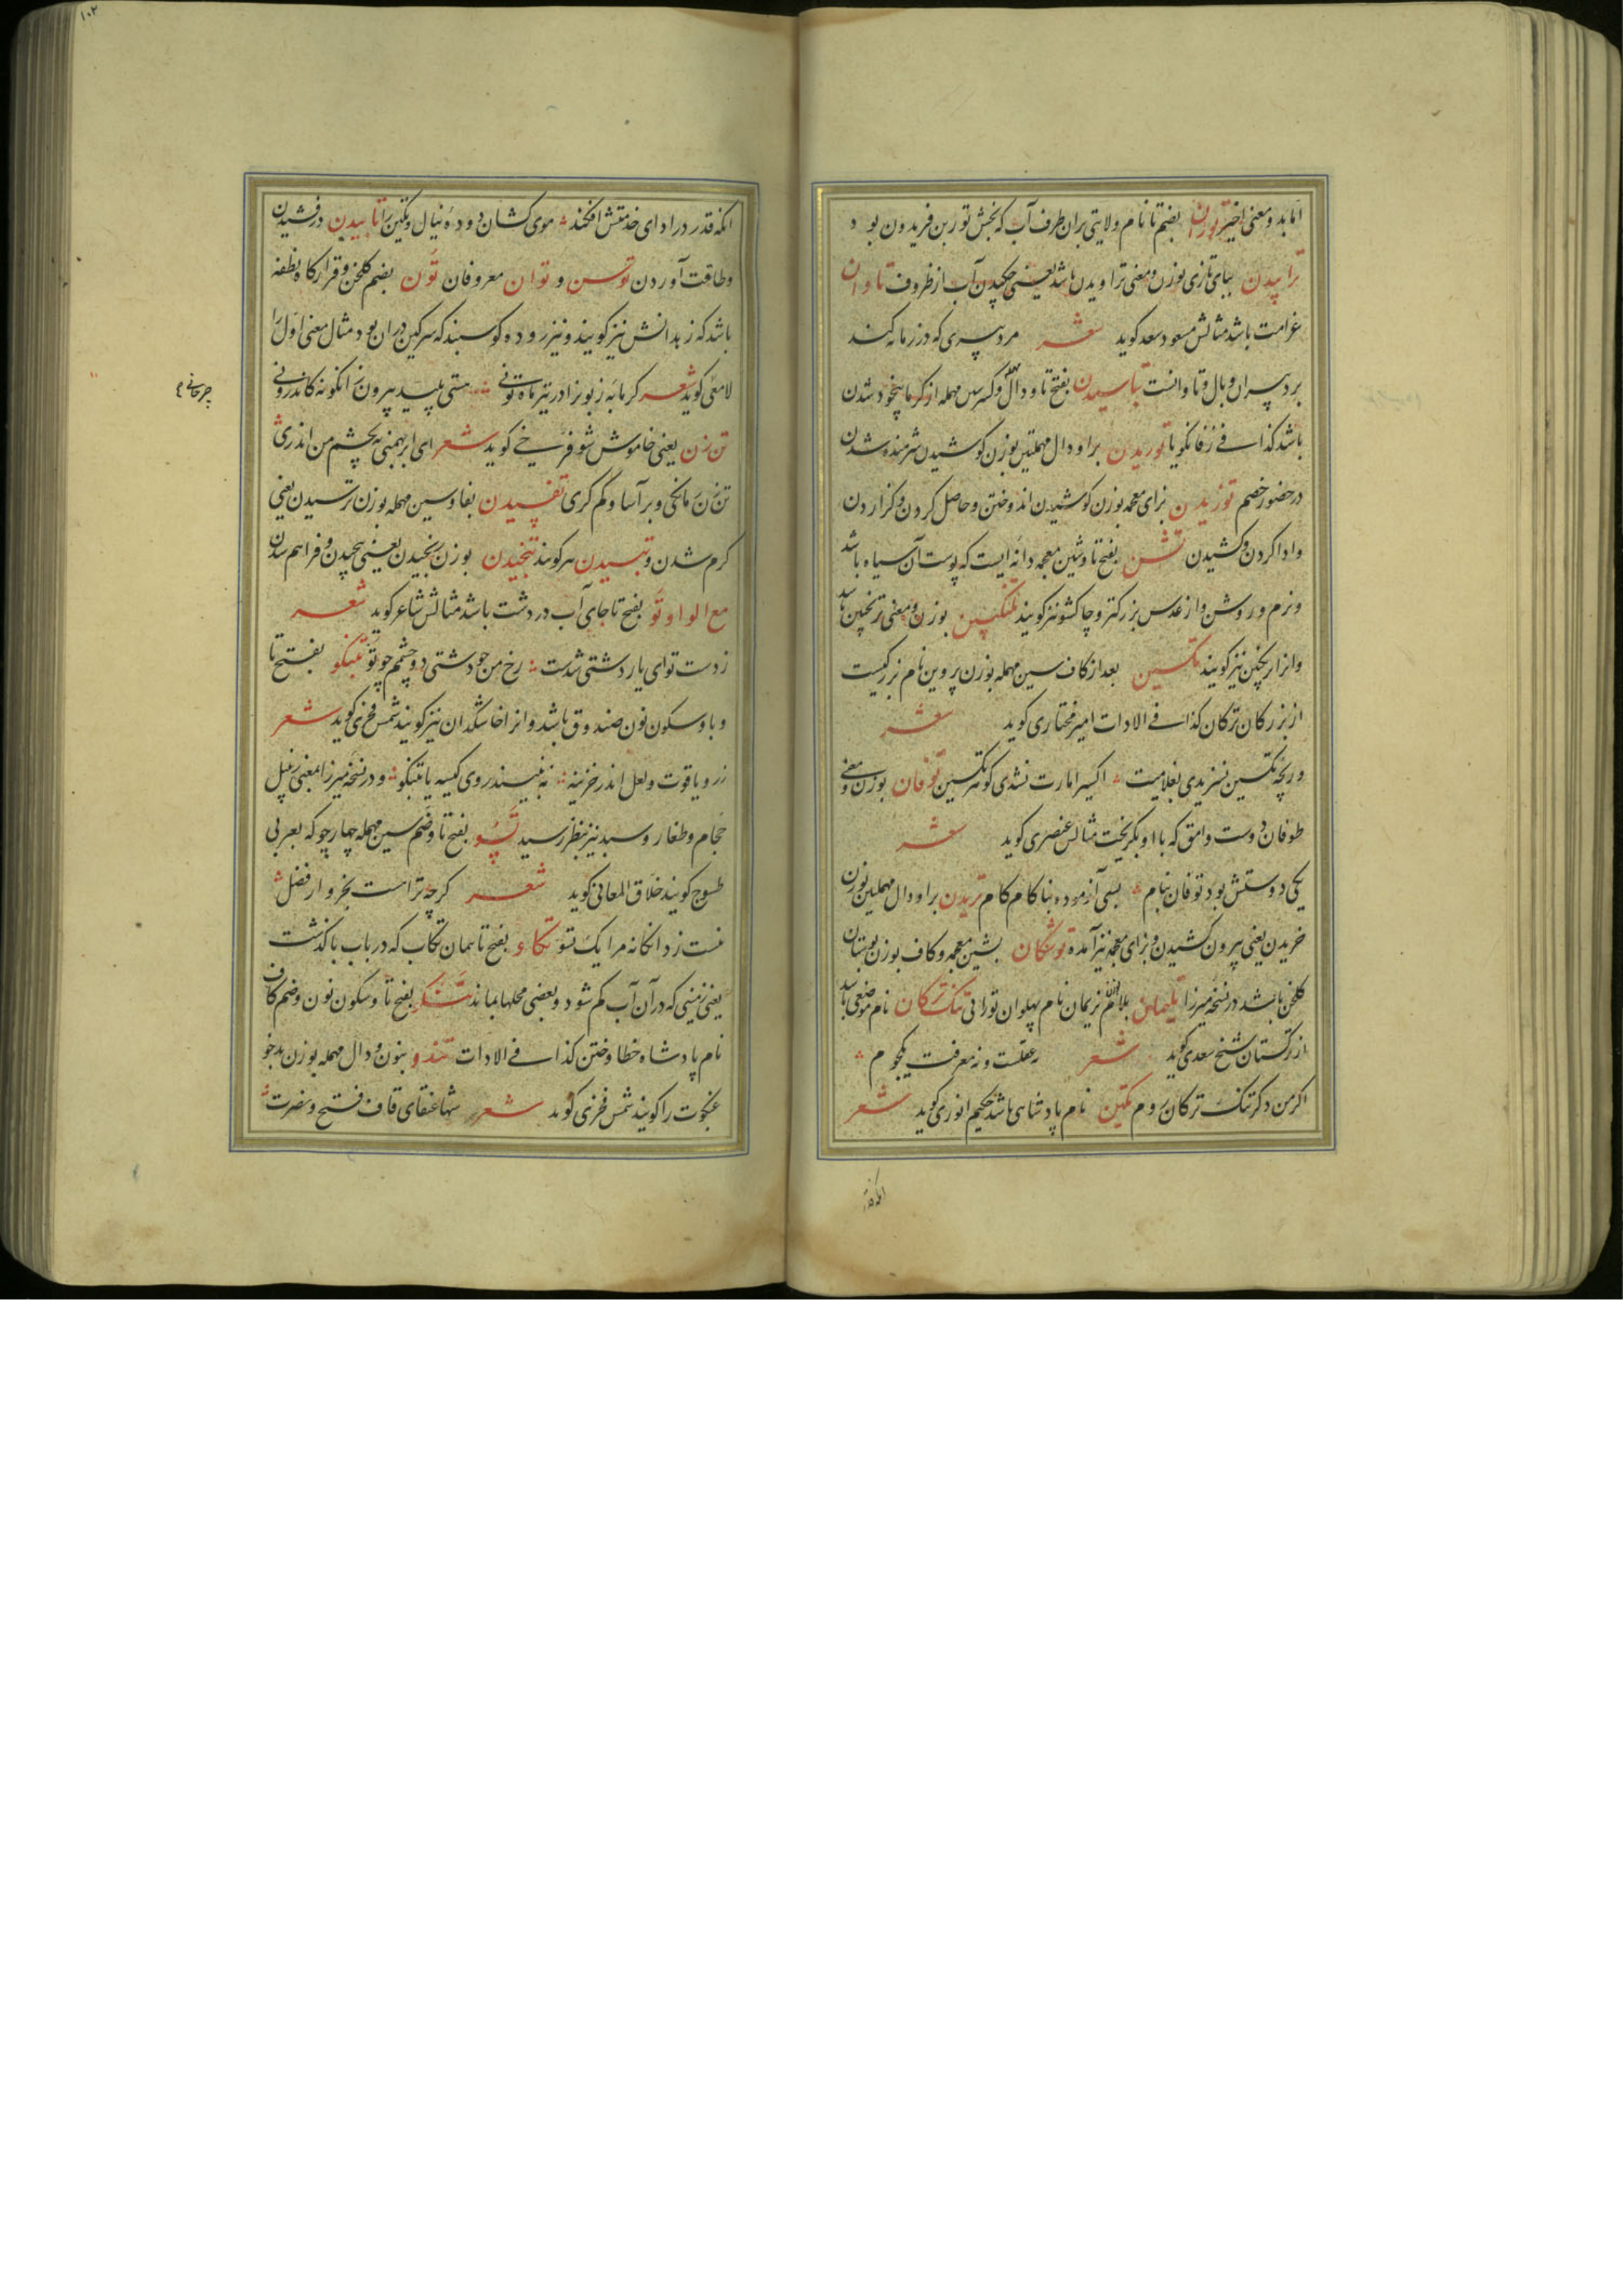 آمابد و معنی اخیر توران بضم تا نام ولایتی بران طرف آب که بخش تور بن فریدون بود
ترابیدن ببای تازی بوزن و معنی تراویدن باشد یعنی چکیدن آب از ظروف تاوان
غرامت باشد مثالش مسعود سعد کوید شعر مرد پسری که در زمانه کند
بر د پسران وبال و تاوانست تاسیدن بفتح تا و دال و کسر سین مهمله از کرما بیخود شدن
باشد کذا فی زفانکویا توریدن برا و دال مهملتین بوزن کوشیدن شرمنده شدن
در حضور خصم توزیدن بزای معجمه بوزن کوشیدن اندوختن و حاصل کردن و کزاردن
و ادا کردن و کشیدن تشن بفتح تا و شین معجمه دانه ایست که پوست آن سیاه باشد
و نرم و روشن و از عدس بزرکتر و چاکشو نیز کویند تلنکبین بوزن و معنی ترنجبین باشد
و انرا ریچین نیز کویند تکسین بعد از کاف سین مهمله بوزن پروین نام بزرکیست
از بزرکان ترکان کذا فی الادات امیر مختاری کوید شعر
و ریچه تکسین نسزیدی بغلامیت اکسیر امارت نشدی کونه تکسین توفان بوزن و معنی
طوفان و دوست وامق که با او بکریخت مثالش عنصری کوید شعر
یکی دوستش بود توفان بنام بسی آزموده بناکام کام تریدن برا و دال مهملتین بوزن
خریدن یعنی بیرون کشیدن و بزای معجمه نیز آمده توشکان بشین معجمه و کاف بوزن بوستان
کلخن باشد در نسخه میرزا تلیمان بلام بوزن نریمان نام پهلوان تورانی تنک ترکان نام موضعی باشد
از ترکستان شیخ سعدی کوید شعر نه عقلست و نه معرفت یکجوم
اکر من دکر تنک ترکان روم تکین نام پادشاهی باشد حکیم انوری کوید شعر
انکه قدر
۱۰۲
انکه قدر در ادای خدمتش افکند موی کشان دوده نیال و تکین را تابیدن درفشیدن
و طاقت آوردن توسن و توان معروفان تون بضم کلخن و قرارکاه نطفه
باشد که زهدانش نیز کویند و نیز روده کوسبند که سرکین دران بود مثال معنی اول را
لامعی کوید شعر کرمابه ز بوزاد تیرماه تونی هستی پلید بیرون زانکونه کاندرونی
تن زن یعنی خاموش شو فرخی کوید شعر ای ابر بهمنی نه بچشم من اندری
تن زن زمانکی و برآسا و کم کری تفسیدن بفا و سین مهمله بوزن ترسیدن یعنی
کرم شدن و تبسیدن هم کویند تنجیدن بوزن رنجیدن یعنی پیچیدن و فراهم شدن
مع الواو تو بفتح تا جای آب در دشت باشد مثالش شاعر کوید شعر
ز دست تو ای یار دشتی شدست رخ من چو دشتی دو چشمم چو تو تبنکو بفتح تا
و با و سکون نون صندوق باشد و انرا خاشکدان نیز کویند شمس فخری کوید شعر
زر و یاقوت و لعل اندر خزینه نه بیند روی کیسه یا تبنکو و در نسخه میرزا بمعنی زنبیل
حجام و طغار و سبد نیز بنظر رسید تسو بفتح تا و ضم سین مهمله چهار جو که بعربی
طسوج کویند خلاق المعانی کوید شعر کرچه تراست بخروار فضل
نیست ز دانکانه مرا یک تسو تکاو بفتح تا همان تکاب که در باب با کذشت
یعنی زمینی که در آن آب کم شود و بعضی محلها بماند تنکو بفتح تا و سکون نون و ضم کاف
نام پادشاه خطا و ختن کذا فی الادات تندو بنون و دال مهمله بوزن بدخو
عنکبوت را کویند شمس فخری کوید شعر شها عنقای قاف فتح و نصرت